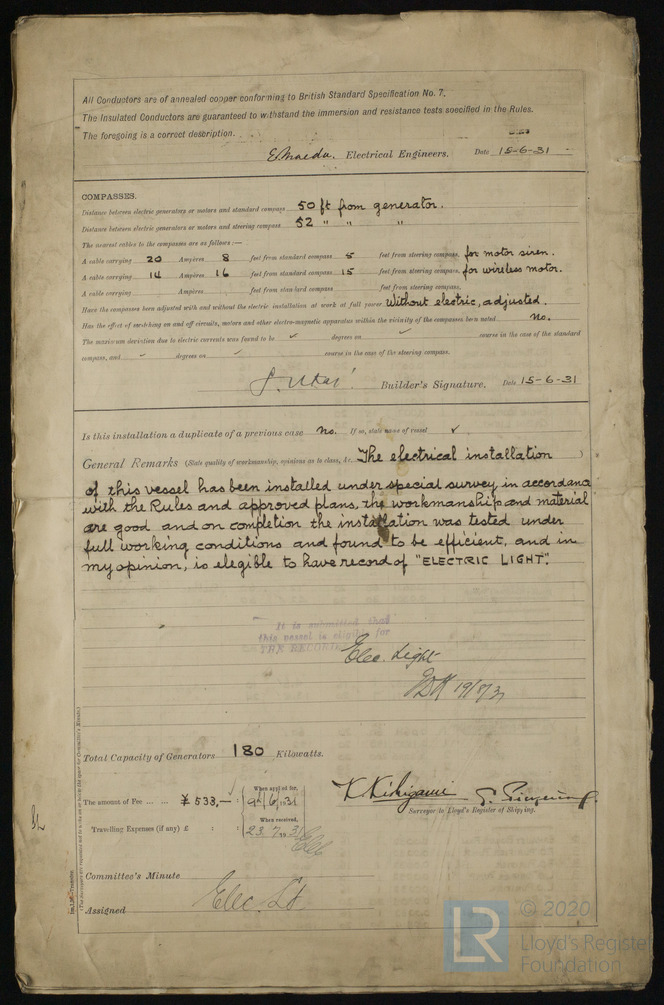 All Conductors are of annealed copper conforming to British Standard Specification No. 7.
The Insulated Conductors are guaranteed to withstand the immersion and resistance tests specified in the Rules.
The foregoing is a correct description.
E. Maeda. Electrical Engineers. Date 15-6-31
COMPASSES.
Distance between electric generators or motors and standard compass 50 ft from generator.
Distance between electric generators or motors and steering compass 52 " " "
The nearest cables to the compasses are as follows:—
A cable carrying 20 Ampères 8 feet from standard compass 5 feet from steering compass. for motor siren.
A cable carrying 14 Ampères 16 feet from standard compass 15 feet from steering compass. for wireless motor.
A cable carrying Ampères feet from standard compass feet from steering compass.
Have the compasses been adjusted with and without the electric installation at work at full power Without electric, adjusted.
Has the effect of switching on and off circuits, motors and other electro-magnetic apparatus within the vicinity of the compasses been noted no.
The maximum deviation due to electric currents was found to be ✓ degrees on ✓ course in the case of the standard
compass, and ✓ degrees on ✓ course in the case of the steering compass.
Builder's Signature. Date 15-6-31
Is this installation a duplicate of a previous case no. If so, state name of vessel ✓
General Remarks (State quality of workmanship, opinions as to class, &c. The electrical installation )
of this vessel has been installed under special survey, in accordance
with the Rules and approved plans, the workmanship and material
are good and on completion the installation was tested under
full working conditions and found to be efficient, and in
my opinion, is elegible to have record of "ELECTRIC LIGHT".
It is submitted that
this vessel is eligible for
THE RECORD
Elec. Light
Total Capacity of Generators 180 Kilowatts.
The amount of Fee ... ... ¥ 533,— ✓
When applied for,
Travelling Expenses (if any) £ : :
When received,
23. 7. 19 31
K Kihigami
Surveyor to Lloyd's Register of Shipping.
Committee's Minute
Assigned
Elec. Lt
LR
© 2020
Lloyd's Register
Foundation